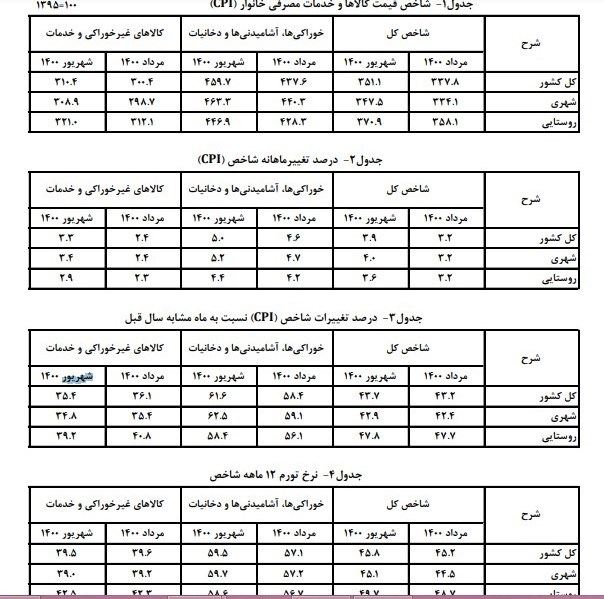 جدول۱- شاخص قیمت کالاها و خدمات مصرفی خانوار (CPI) ۱۳۹۵=۱۰۰
شرح شاخص کل خوراکی‌ها، آشامیدنی‌ها و دخانیات کالاهای غیرخوراکی و خدمات
مرداد ۱۴۰۰ شهریور ۱۴۰۰ مرداد ۱۴۰۰ شهریور ۱۴۰۰ مرداد ۱۴۰۰ شهریور ۱۴۰۰
کل کشور ۳۳۷.۸ ۳۵۱.۱ ۴۳۷.۶ ۴۵۹.۷ ۳۰۰.۴ ۳۱۰.۴
شهری ۳۳۴.۱ ۳۴۷.۵ ۴۴۰.۳ ۴۶۳.۳ ۲۹۸.۷ ۳۰۸.۹
روستایی ۳۵۸.۱ ۳۷۰.۹ ۴۲۸.۳ ۴۴۶.۹ ۳۱۲.۱ ۳۲۱.۰
جدول۲- درصد تغییرماهانه شاخص (CPI)
شرح شاخص کل خوراکی‌ها، آشامیدنی‌ها و دخانیات کالاهای غیرخوراکی و خدمات
مرداد ۱۴۰۰ شهریور ۱۴۰۰ مرداد ۱۴۰۰ شهریور ۱۴۰۰ مرداد ۱۴۰۰ شهریور ۱۴۰۰
کل کشور ۳.۲ ۳.۹ ۴.۶ ۵.۰ ۲.۴ ۳.۳
شهری ۳.۲ ۴.۰ ۴.۷ ۵.۲ ۲.۴ ۳.۴
روستایی ۳.۲ ۳.۶ ۴.۲ ۴.۴ ۲.۳ ۲.۹
جدول۳- درصد تغییرات شاخص (CPI) نسبت به ماه مشابه سال قبل
شرح شاخص کل خوراکی‌ها، آشامیدنی‌ها و دخانیات کالاهای غیرخوراکی و خدمات
مرداد ۱۴۰۰ شهریور ۱۴۰۰ مرداد ۱۴۰۰ شهریور ۱۴۰۰ مرداد ۱۴۰۰ شهریور ۱۴۰۰
کل کشور ۴۳.۲ ۴۳.۷ ۵۸.۴ ۶۱.۶ ۳۶.۱ ۳۵.۴
شهری ۴۲.۴ ۴۲.۹ ۵۹.۱ ۶۲.۵ ۳۵.۴ ۳۴.۸
روستایی ۴۷.۷ ۴۷.۸ ۵۶.۱ ۵۸.۴ ۴۰.۸ ۳۹.۲
جدول۴- نرخ تورم ۱۲ ماهه شاخص
شرح شاخص کل خوراکی‌ها، آشامیدنی‌ها و دخانیات کالاهای غیرخوراکی و خدمات
مرداد ۱۴۰۰ شهریور ۱۴۰۰ مرداد ۱۴۰۰ شهریور ۱۴۰۰ مرداد ۱۴۰۰ شهریور ۱۴۰۰
کل کشور ۴۵.۲ ۴۵.۸ ۵۷.۱ ۵۹.۵ ۳۹.۶ ۳۹.۵
شهری ۴۴.۵ ۴۵.۱ ۵۷.۲ ۵۹.۷ ۳۹.۲ ۳۹.۰
روستایی ۴۸.۷ ۴۹.۷ ۵۶.۷ ۵۸.۶ ۴۲.۳ ۴۲.۵